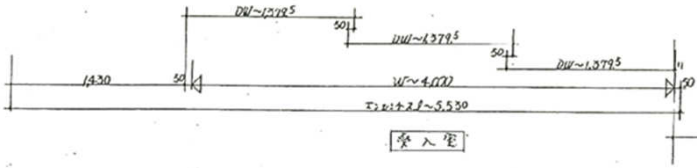 DW~1,379.5
50
DW~1,379.5
50
DW~1,379.5
1,430
50
W~4,000
50
5,530
受入室